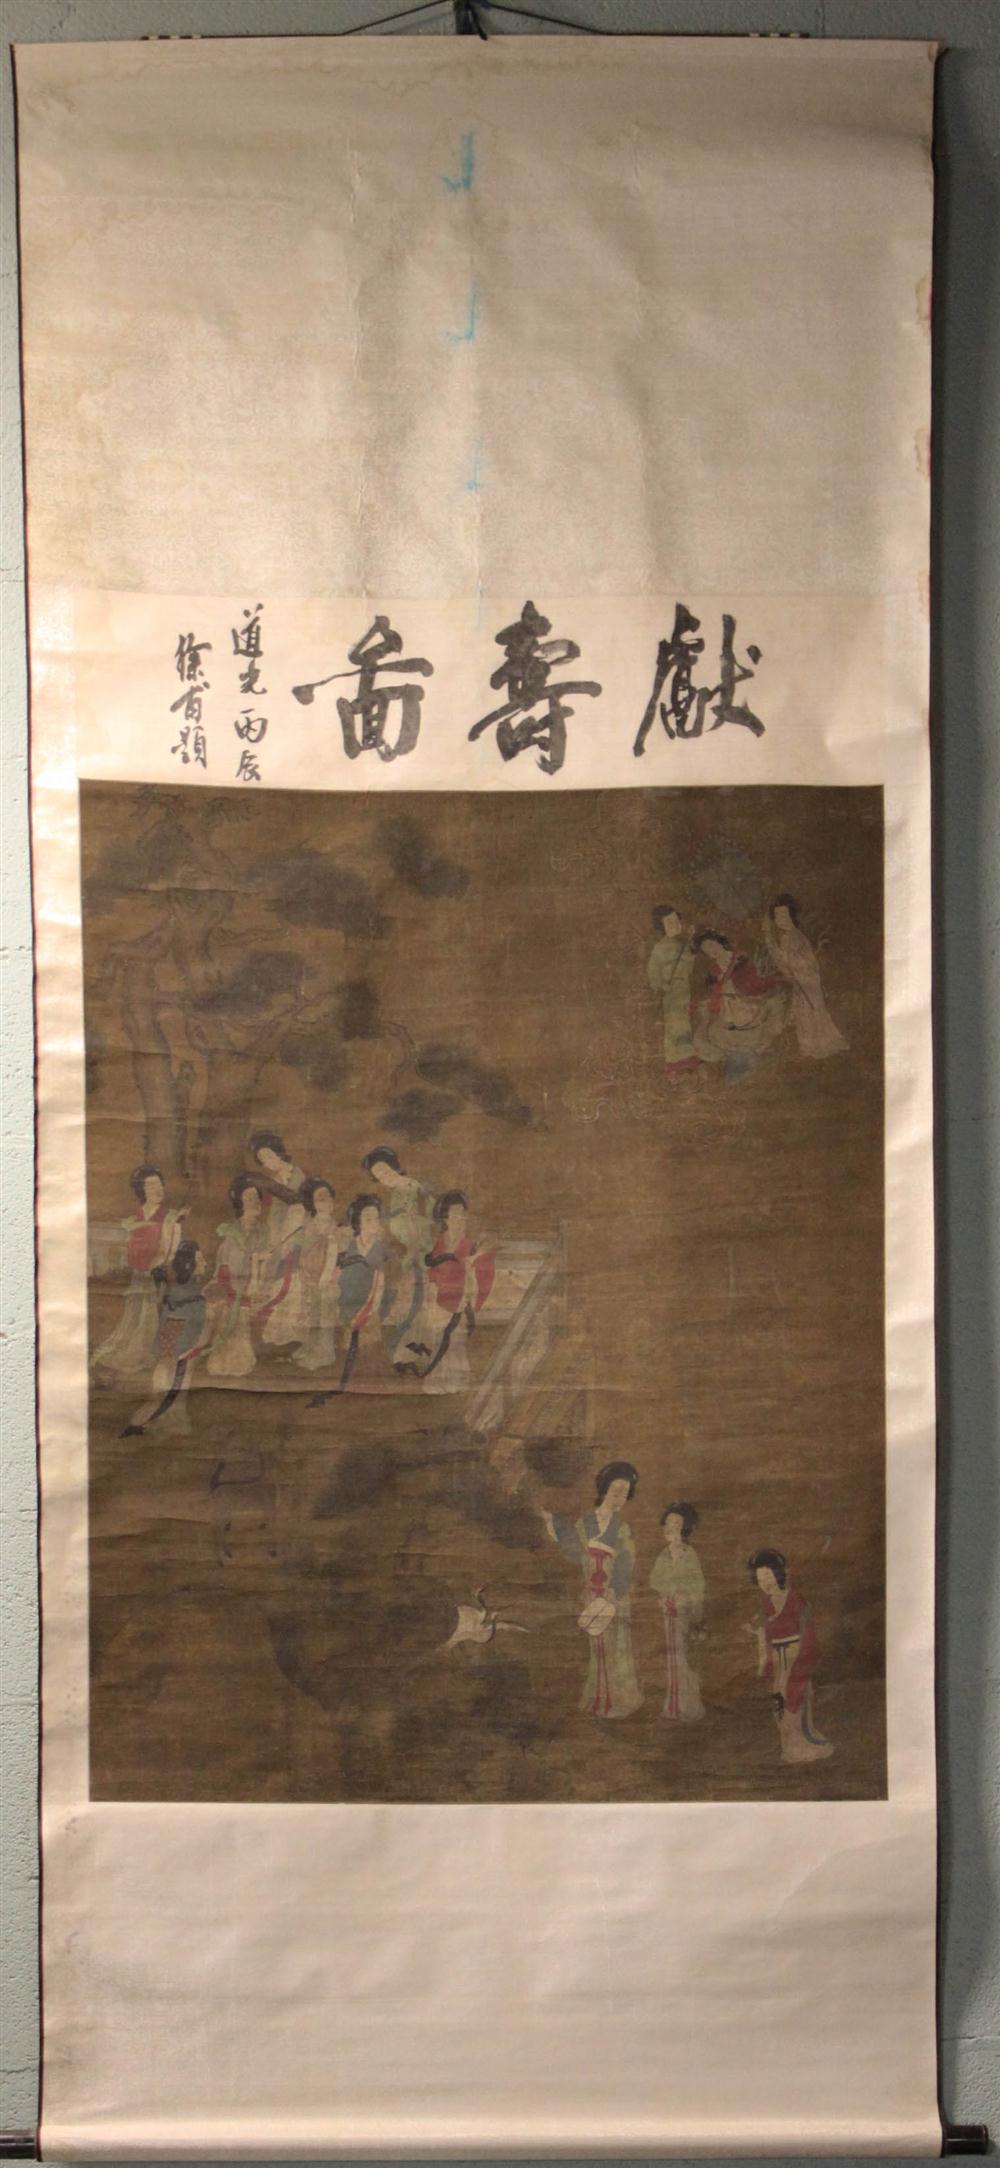 獻壽啚
道光丙辰
徐甫題